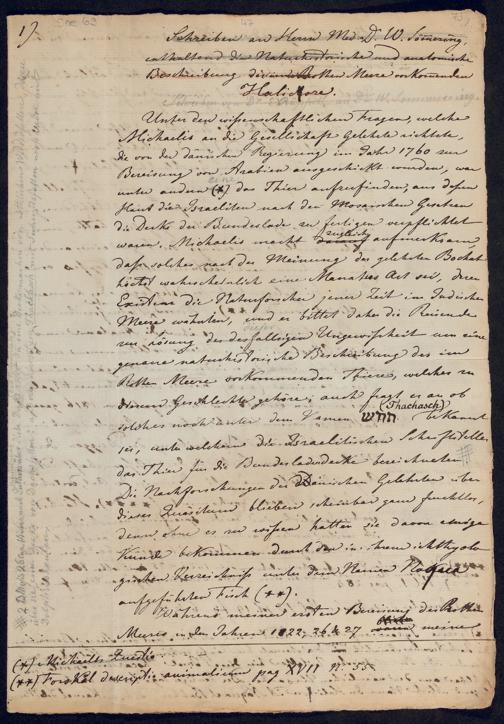 1).
Schreiben an Herrn Med. Dr. W. Sömmering,
enthaltend die Naturhistorische und anatomische
Beschreibung des im Rothen Meere vorkommenden
Halicore.
Unter den wissenschaftlichen Fragen, welche
Michaelis an die Gesellschaft Gelehrte richtete,
die von der dänischen Regierung im Jahr 1760 zur
Bereisung von Arabien ausgeschickt wurden, war
unter andern (*) das Thier aufzufinden, aus dessen
Haut die Israeliten nach den Mosaischen Gesetzen
die Decke der Bundeslade zu fertigen verpflichtet
waren. Michaelis macht zugleich aufmerksam,
daß solches nach der Meinung des gelehrten Bochart
höchst wahrscheinlich eine Manatus Art sei, deren
Existenz die Naturforscher jener Zeit im Indischen
Meere wähnten, und er bittet daher die Reisende
zur Lösung der desfallsigen Ungewißheit um eine
genaue naturhistorische Beschreibung des im
Rothen Meere vorkommenden Thiers, welches zu
diesem Geschlechte gehöre; auch fragt er an ob
solches noch unter dem Namen תחש (Thachasch) bekannt
sei, unter welchem die Israelitischen Schriftsteller
das Thier für die Bundesladendecke bezeichneten.
Die Nachforschungen der Dänischen Gelehrten über
dieses Quaesitum blieben scheinbar ganz fruchtlos,
denn ohne es zu wissen hatten sie davon einige
Kunde bekommen durch den in ihrem ichthyolo-
gischen Verzeichniß unter dem Namen
aufgeführten Fisch (**).
Während meiner ersten Bereisung des Rothen
Meeres in den Jahren 1822, 26 & 27 meine
(*) Michaelis
(**) Forskål descriptio animalium pag XVII